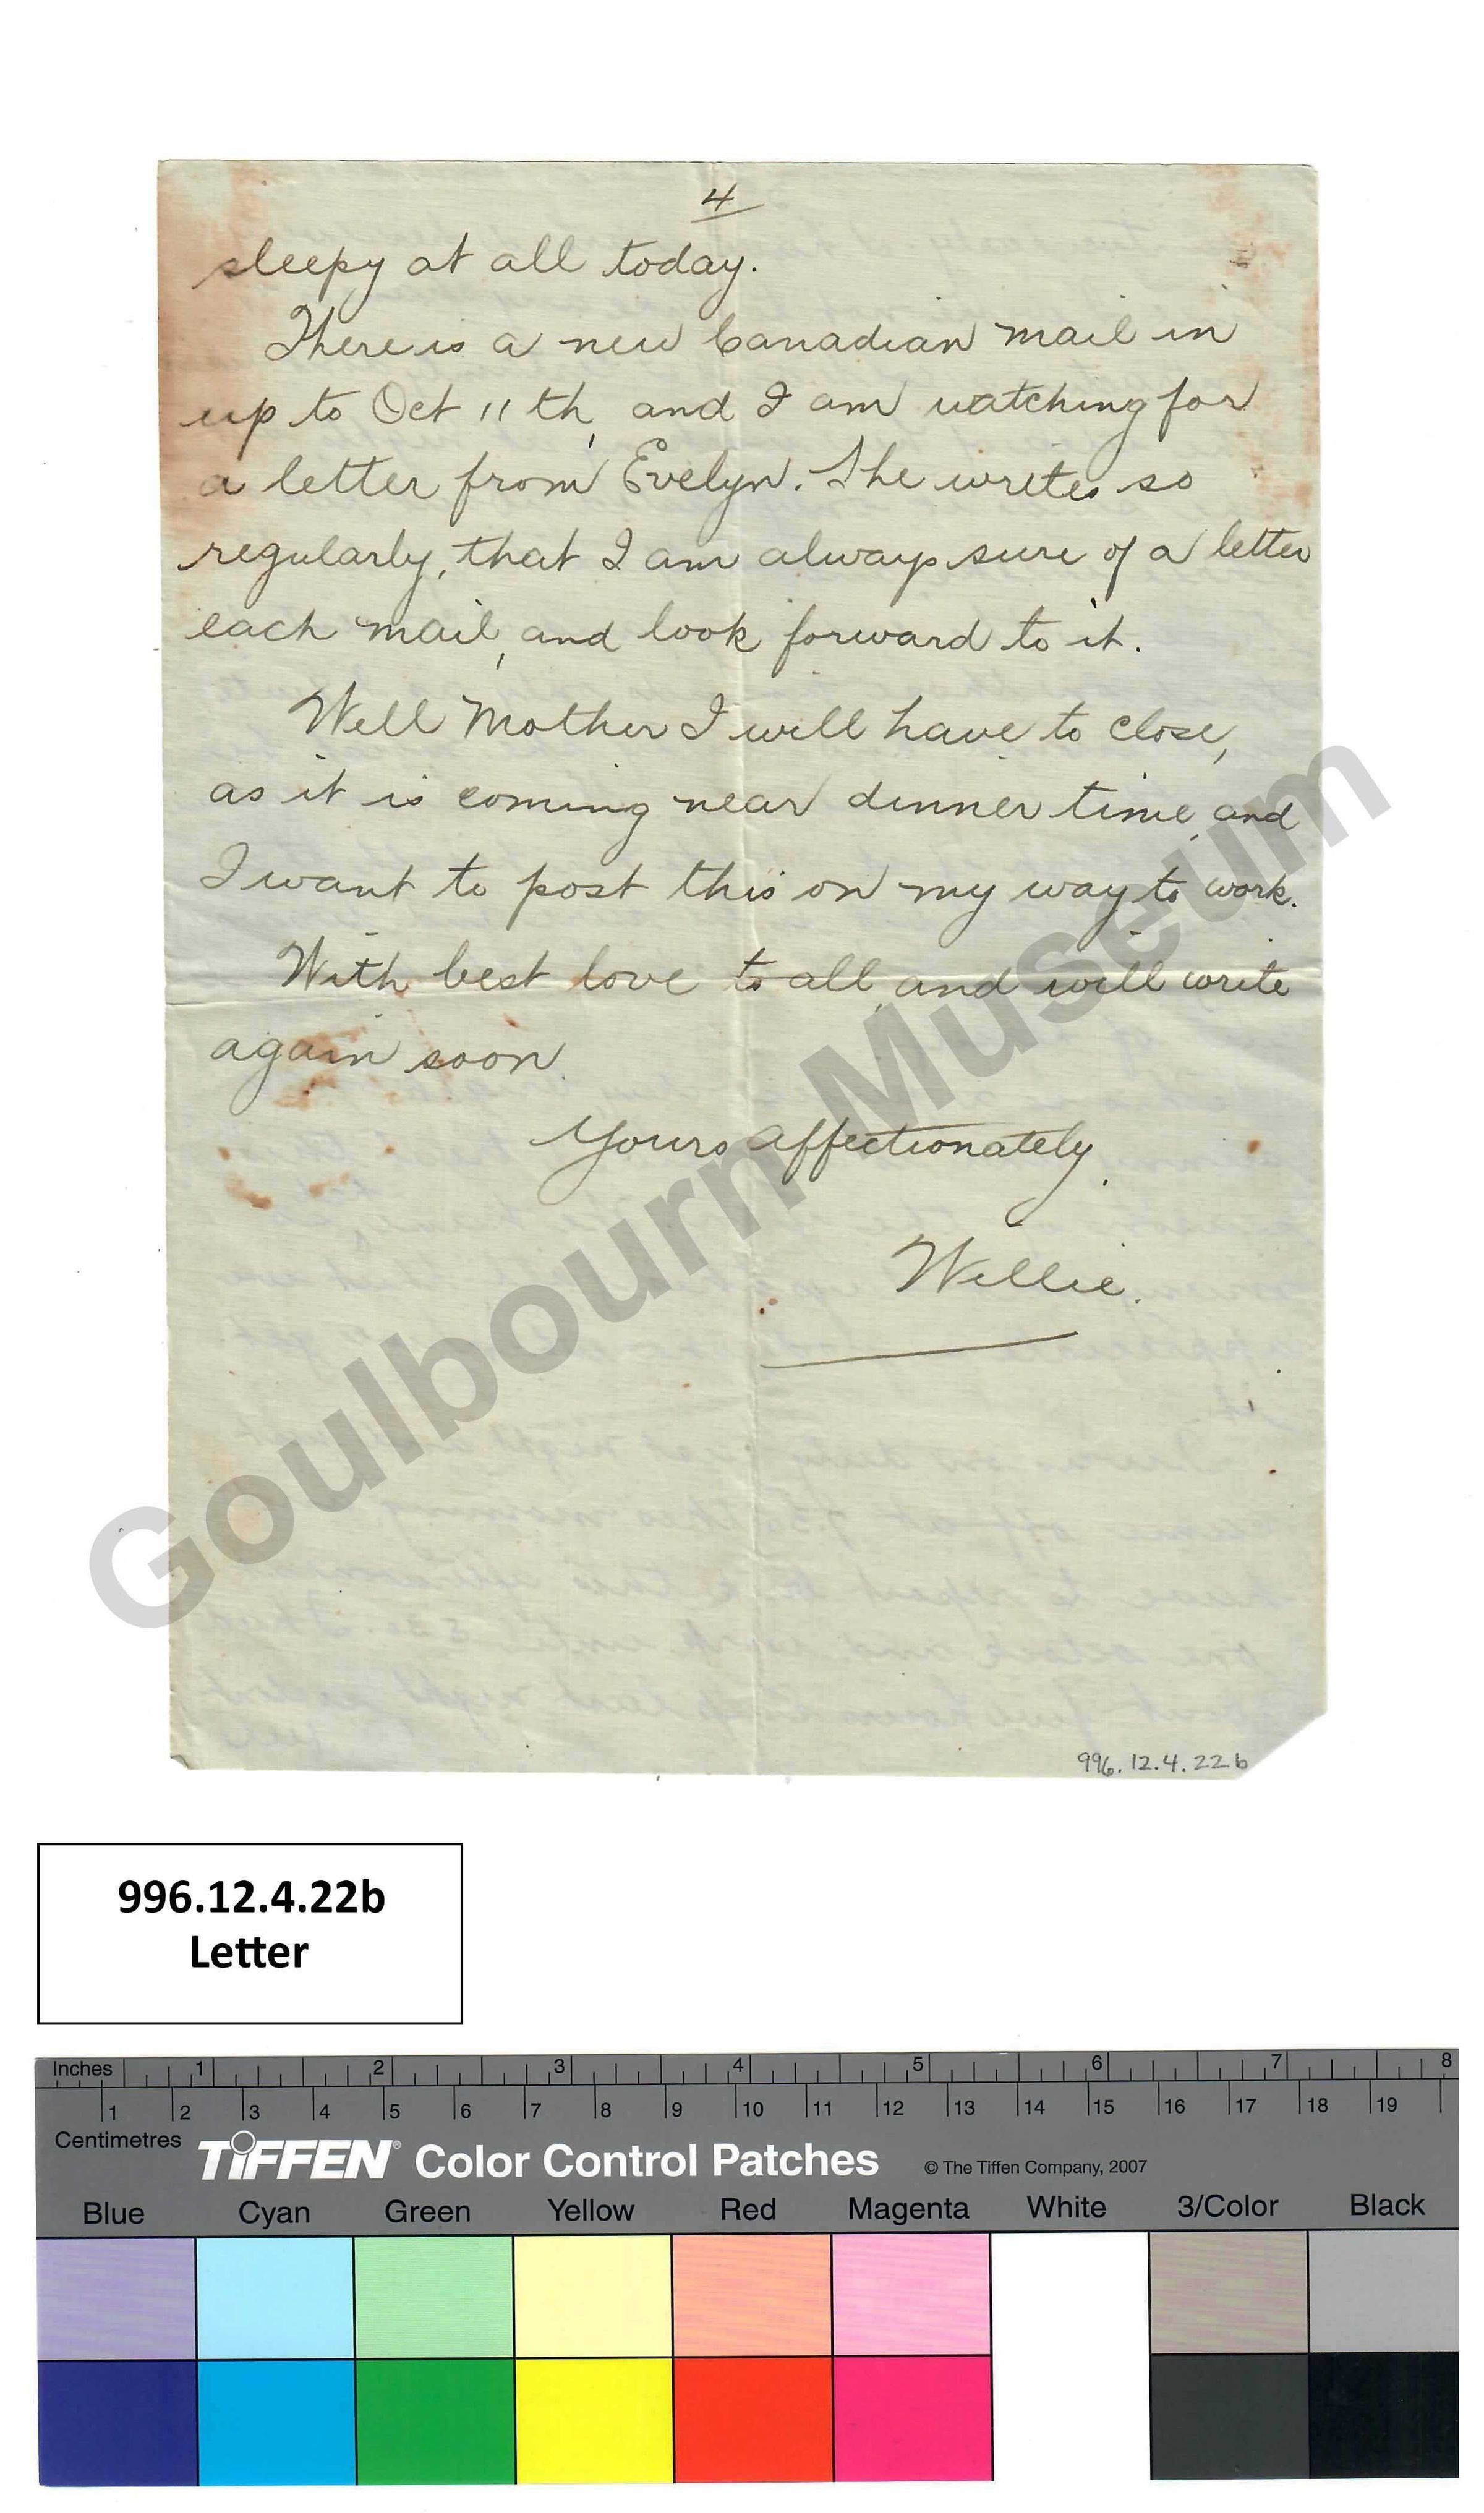 4
sleepy at all today.
There is a new Canadian mail in
up to Oct 11th, and I am watching for
a letter from Evelyn. She writes so
regularly, that I am always sure of a letter
each mail, and look forward to it.
Well Mother I will have to close,
as it is coming near dinner time, and
I want to post this on my way to work.
With best love to all, and will write
again soon.
Yours affectionately.
Willie.
996.12.4.22b
Goulbourn Museum
996.12.4.22b
Letter
Inches 1 2 3 4 5 6 7 8
1 2 3 4 5 6 7 8 9 10 11 12 13 14 15 16 17 18 19
Centimetres
TIFFEN® Color Control Patches © The Tiffen Company, 2007
Blue Cyan Green Yellow Red Magenta White 3/Color Black